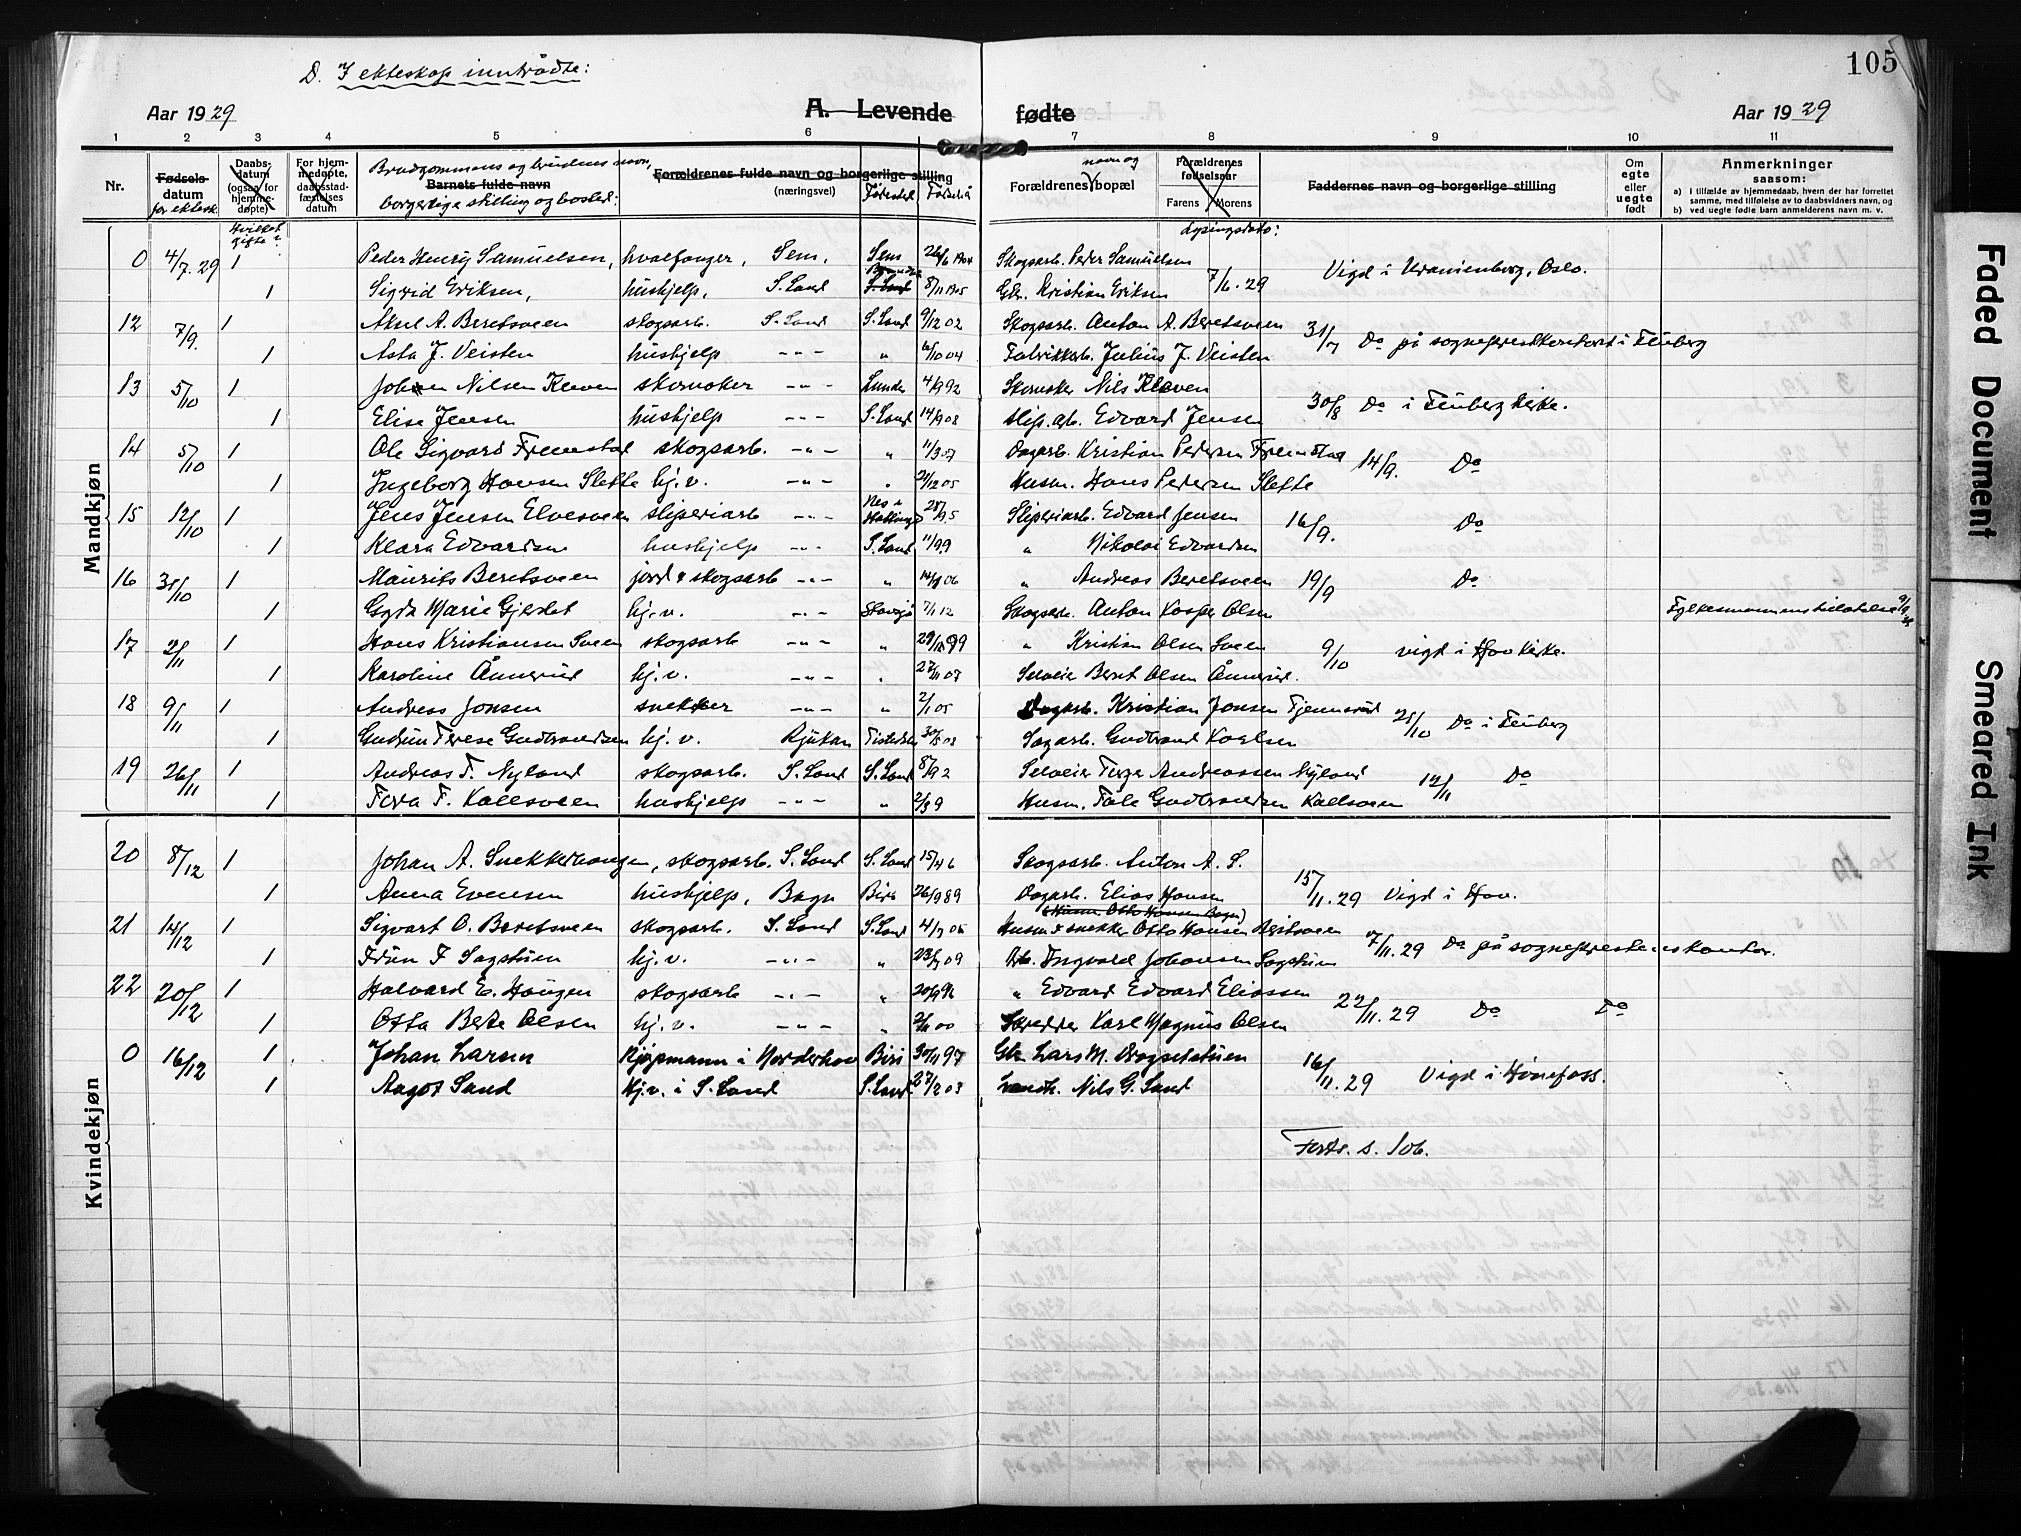 105
D. I ekteskap inntrådte:
Aar 1929
A. Levende fødte
Aar 1929
1 2 3 4 5 6 7 8 9 10 11
Nr.
Fødsels-datum
for ektesk.
Daabs-datum (ogsaa for hjemme-døpte)
For hjem-medøpte, daabsstad-fæstelses datum
Brudgommens og brudens navn,
Barnets fulde navn
borgerlige stilling og bosted:
Forældrenes fulde navn og borgerlige stilling
(næringsvei)
Fødested
Fødselså
navn og
Forældrenes bopæl
Forældrenes fødselsaar
Farens Morens
Faddernes navn og borgerlige stilling
Om egte eller uegte født
Anmerkninger
saasom:
a) i tilfælde av hjemmedaab, hvem der har forrettet samme, med tilføielse av to daabsvidners navn, og
b) ved uegte fødte barn anmelderens navn m. v.
Hvilket gifte?
Lysingsdato:
Mandkjøn
0 4/7.29 1 Peder Henry Samuelsen, hvalfanger, Sem, Sem 26/6 1904 Skogsarb. Peder Samuelsen
1 Sigrid Eriksen, hushjelp, S. Land S. Land 8/11 1905 Gbr. Kristian Eriksen 7/6.29 Vigd i Uranienborg, Oslo.
12 7/9. 1 Aksel A. Beretsveen skogsarb. S. Land S. Land 9/12 02 Skogsarb. Anton A. Beretsveen
1 Asta J. Veisten hushjelp -"- " 6/10 04 Fabrikkarb. Julius J. Veisten 31/7 Do på sogneprestkontoret i Fluberg
13 5/10 1 Johan Nilsen Kleven skomaker -"- Lunder 4/9 92 Skomaker Nils Kleven
1 Elise Jensen hushjelp -"- S. Land 14/9 08 slip.arb. Edvard Jensen 30/8 Do i Fluberg kirke.
14 5/10 1 Ole Sigvard Fremstad skogsarb. -"- " 11/3 07 Dagarb. Kristian Pedersen Fremstad
1 Ingeborg Hansen Slette hj.v. -"- " 21/12 05 Husm. Hans Pedersen Slette 14/9. Do
15 12/10 1 Jens Jensen Elvesveen sliperiarb -"- Nes i Halling 28/9 5 Sliperiarb. Edvard Jensen
1 Klara Edvardsen hushjelp -"- S. Land 11/9 9 " Nikolai Edvardsen 16/9. Do
16 31/10 1 Maurits Beretsveen jord & skogsarb -"- " 06 " Andreas Beretsveen 19/9 Do
1 Gyda Marie Gjerdet hj.v. -"- 7/1 12 Skogsarb. Anton Kasper Olsen
17 2/11 1 Hans Kristiansen Sveen skogsarb -"- " 99 " Kristian Olsen Sveen
1 Karoline Ånnerud hj.v. -"- " 27/11 07 Selveier Bernt Olsen Ånnerud. 9/10 vigd i Hov kirke.
18 9/11 1 Andreas Jonsen snekker -"- " 2/1 05 Dagarb. Kristian Jonsen
1 Gudrun Terese Gudbrandsen hj.v. Rjukan 30/5 08 Sagarb. Gudbrand Karlsen 21/10 Do i Fluberg
19 26/11 1 Andreas T. Nyland skogsarb. S. Land S. Land 8/9 2 Selveier Terje Andreassen Nyland
1 Tora T. Kallsveen hushjelp -"- " Husm. Tåle Gudbrandsen Kallsveen 12/11 Do
Kvindekjøn
20 8/12 1 Johan A. Snekkerhaugen, skogsarb. S. Land S. Land 15/4 6 Skogsarb. Anton A. S.
1 Anna Evensen hushjelp, Bagn Biri 26/9 89 Dagarb. Elias Hansen 15/11.29 Vigd i Hov.
(Husm. Otto Hansen Bagn)
21 14/12 1 Sigvart O. Beretsveen skogsarb. S. Land S. Land 4/7 06 Husm & snekker Otto Hansen Beretsveen
1 hj.v. -"- " 23/7 09 Arb. Ingvald Johansen Sagstuen 7/11.29 Do på sogneprestens kontor.
22 20/12 1 Halvard E. Haugen skogsarb -"- " 20/9 96 " Edvard Edvard Eliassen
1 Otta Berte Olsen hj.v. -"- " 00 Skredder Karl Magnus Olsen 22/11.29 Do Do
0 16/12 1 Johan Larsen i Norderhov Biri 30/11 97 Gbr Lars M. Dragsetstuen
1 Aagot Sand Hj.v. i S. Land S. Land 27/2 03 Landh. Nils G. Sand 16/11.29 Vigd i Hønefoss.
Forts. s. 106.
Faded Document
Smeared Ink